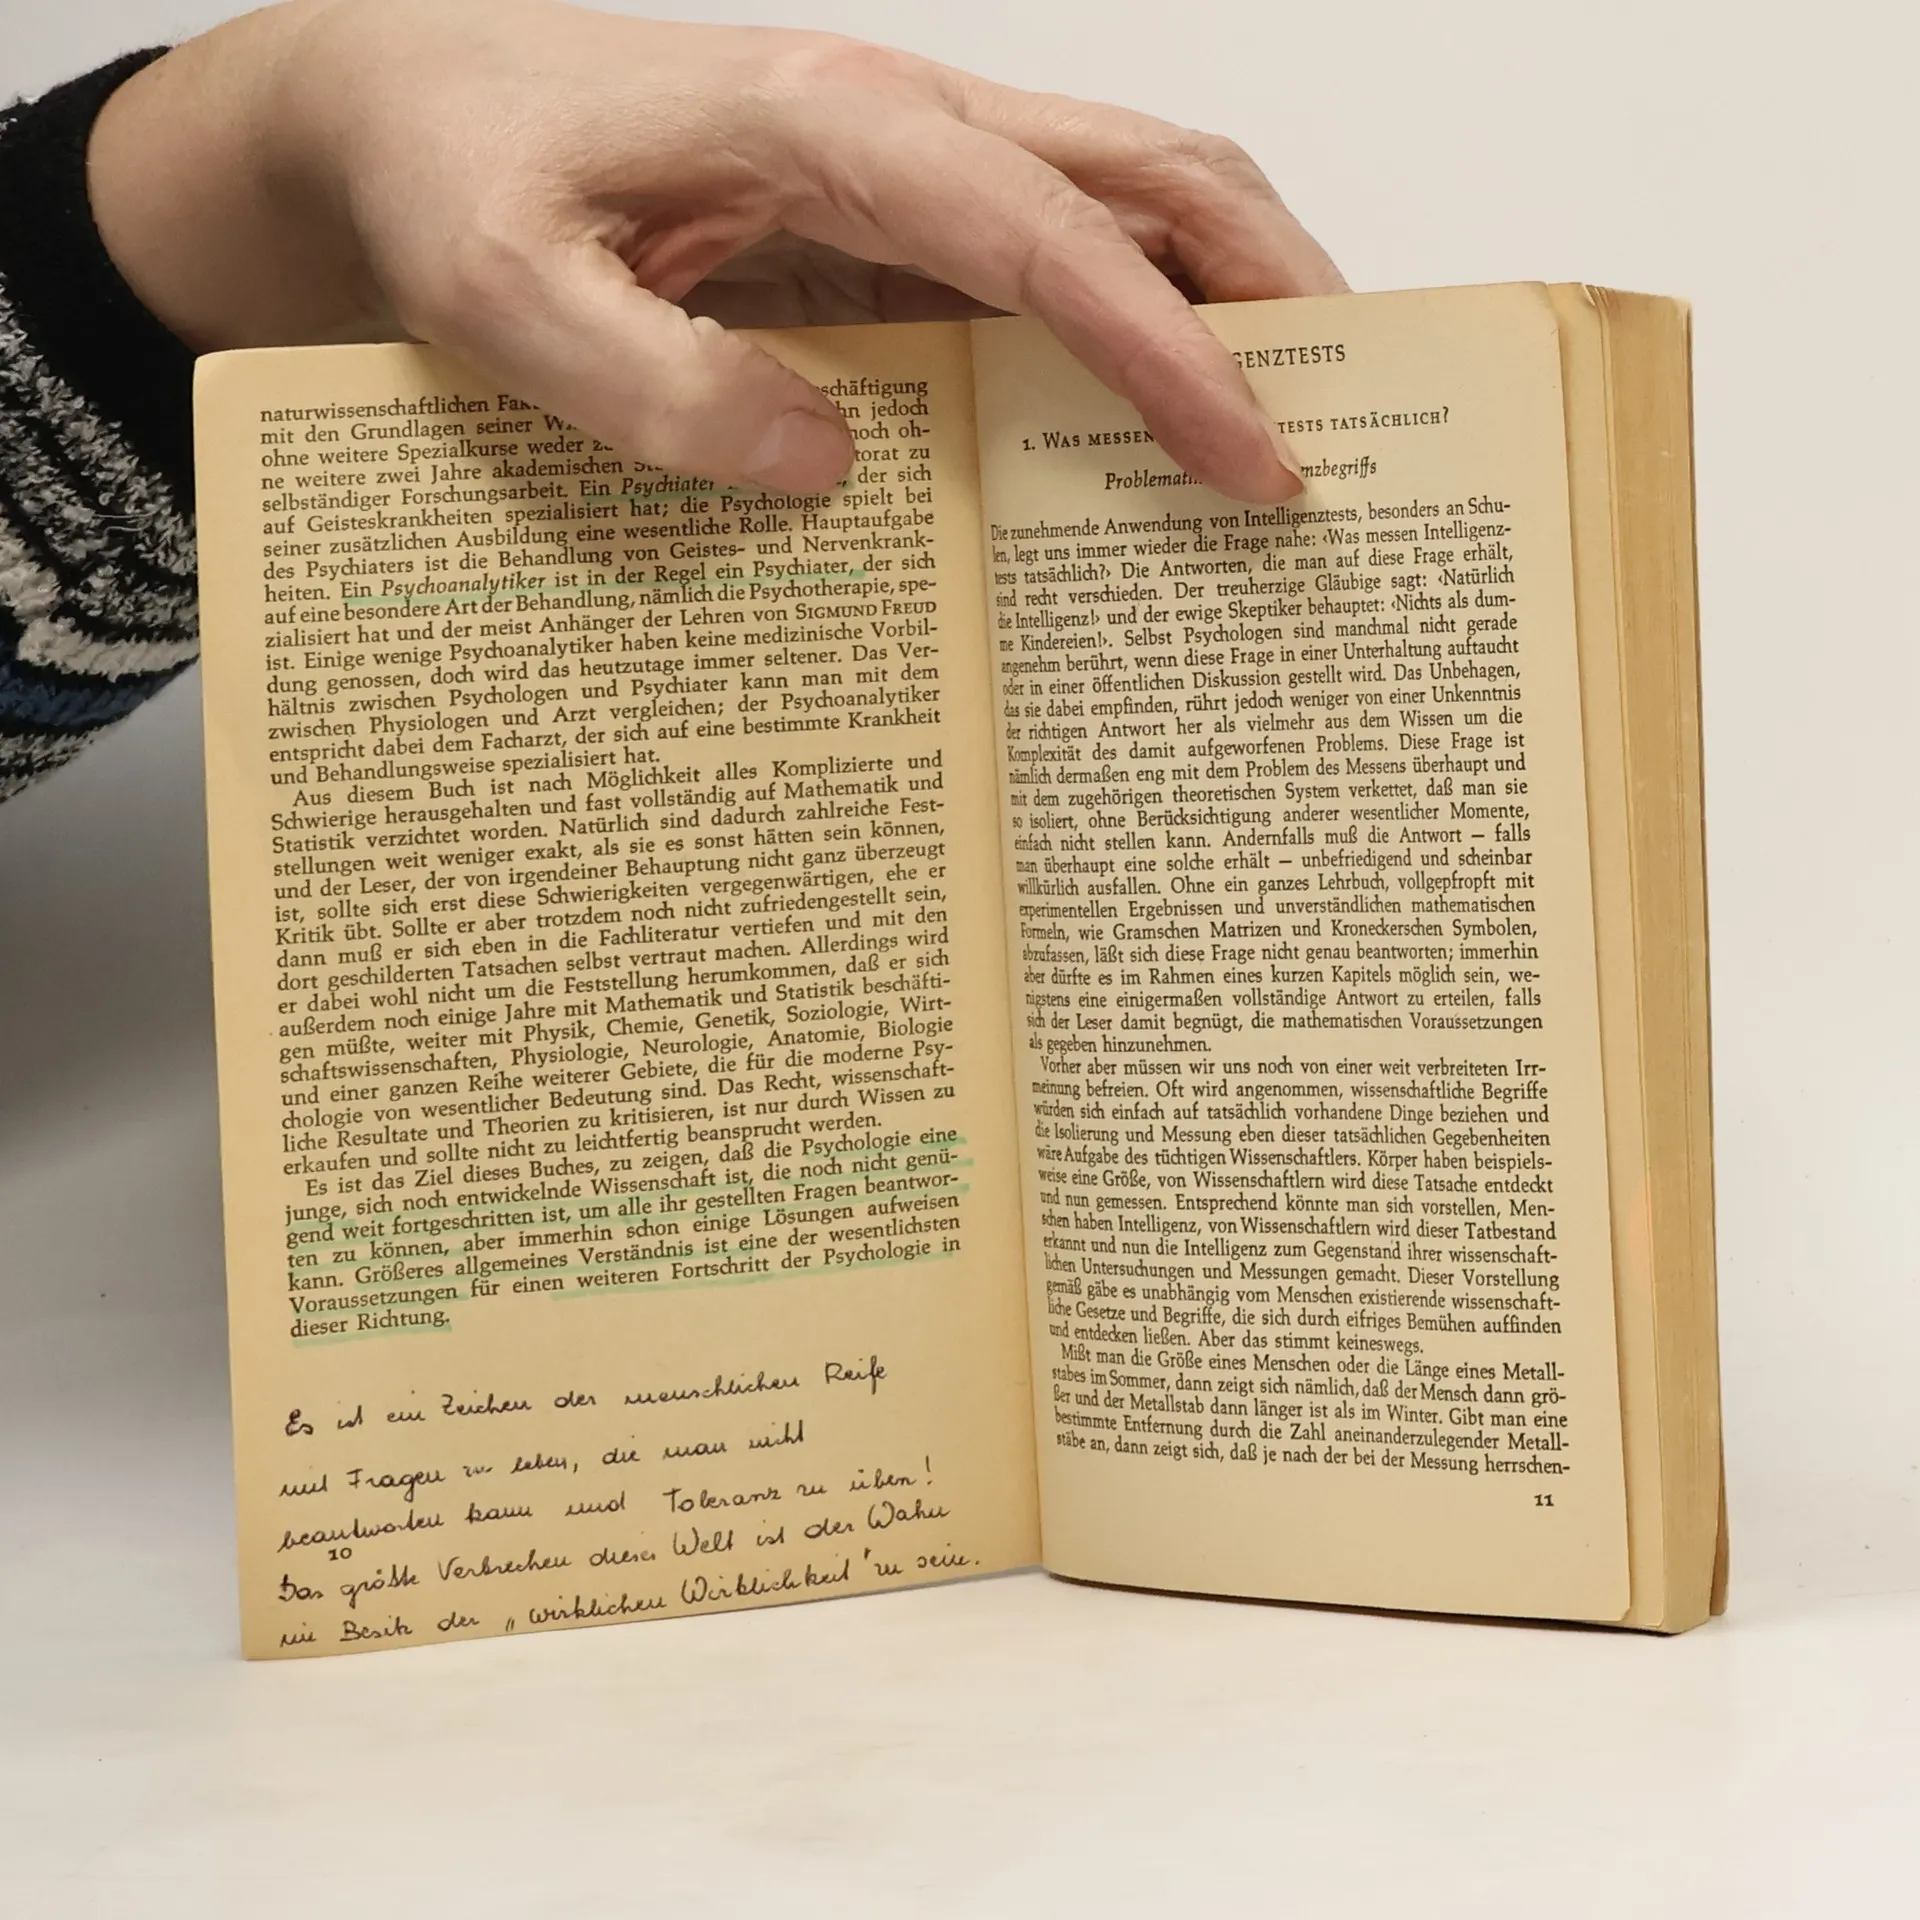 naturwissenschaftlichen schäftigung
mit den Grundlagen seiner jedoch
ohne weitere Spezialkurse weder noch oh-
ne weitere zwei Jahre akademischen torat zu
selbständiger Forschungsarbeit. Ein Psychiater der sich
auf Geisteskrankheiten spezialisiert hat; die Psychologie spielt bei
seiner zusätzlichen Ausbildung eine wesentliche Rolle. Hauptaufgabe
des Psychiaters ist die Behandlung von Geistes- und Nervenkrank-
heiten. Ein Psychoanalytiker ist in der Regel ein Psychiater, der sich
auf eine besondere Art der Behandlung, nämlich die Psychotherapie, spe-
zialisiert hat und der meist Anhänger der Lehren von SIGMUND FREUD
ist. Einige wenige Psychoanalytiker haben keine medizinische Vorbil-
dung genossen, doch wird das heutzutage immer seltener. Das Ver-
hältnis zwischen Psychologen und Psychiater kann man mit dem
zwischen Physiologen und Arzt vergleichen; der Psychoanalytiker
entspricht dabei dem Facharzt, der sich auf eine bestimmte Krankheit
und Behandlungsweise spezialisiert hat.
Aus diesem Buch ist nach Möglichkeit alles Komplizierte und
Schwierige herausgehalten und fast vollständig auf Mathematik und
Statistik verzichtet worden. Natürlich sind dadurch zahlreiche Fest-
stellungen weit weniger exakt, als sie es sonst hätten sein können,
und der Leser, der von irgendeiner Behauptung nicht ganz überzeugt
ist, sollte sich erst diese Schwierigkeiten vergegenwärtigen, ehe er
Kritik übt. Sollte er aber trotzdem noch nicht zufriedengestellt sein,
dann muß er sich eben in die Fachliteratur vertiefen und mit den
dort geschilderten Tatsachen selbst vertraut machen. Allerdings wird
er dabei wohl nicht um die Feststellung herumkommen, daß er sich
außerdem noch einige Jahre mit Mathematik und Statistik beschäfti-
gen müßte, weiter mit Physik, Chemie, Genetik, Soziologie, Wirt-
schaftswissenschaften, Physiologie, Neurologie, Anatomie, Biologie
und einer ganzen Reihe weiterer Gebiete, die für die moderne Psy-
chologie von wesentlicher Bedeutung sind. Das Recht, wissenschaft-
liche Resultate und Theorien zu kritisieren, ist nur durch Wissen zu
erkaufen und sollte nicht zu leichtfertig beansprucht werden.
Es ist das Ziel dieses Buches, zu zeigen, daß die Psychologie eine
junge, sich noch entwickelnde Wissenschaft ist, die noch nicht genü-
gend weit fortgeschritten ist, um alle ihr gestellten Fragen beantwor-
ten zu können, aber immerhin schon einige Lösungen aufweisen
kann. Größeres allgemeines Verständnis ist eine der wesentlichsten
Voraussetzungen für einen weiteren Fortschritt der Psychologie in
dieser Richtung.
Es ist ein Zeichen der menschlichen Reife
mit Fragen zu leben, die man nicht
beantworten kann und Toleranz zu üben!
10
Das größte Verbrechen dieser Welt ist der Wahn
im Besitz der „wirklichen Wirklichkeit" zu sein.
GENZTESTS
1. WAS MESSEN TESTS TATSÄCHLICH?
nzbegriffs
Die zunehmende Anwendung von Intelligenztests, besonders an Schu-
len, legt uns immer wieder die Frage nahe: ‹Was messen Intelligenz-
tests tatsächlich?› Die Antworten, die man auf diese Frage erhält,
sind recht verschieden. Der treuherzige Gläubige sagt: ‹Natürlich
die Intelligenz!› und der ewige Skeptiker behauptet: ‹Nichts als dum-
me Kindereien!›. Selbst Psychologen sind manchmal nicht gerade
angenehm berührt, wenn diese Frage in einer Unterhaltung auftaucht
oder in einer öffentlichen Diskussion gestellt wird. Das Unbehagen,
das sie dabei empfinden, rührt jedoch weniger von einer Unkenntnis
der richtigen Antwort her als vielmehr aus dem Wissen um die
Komplexität des damit aufgeworfenen Problems. Diese Frage ist
nämlich dermaßen eng mit dem Problem des Messens überhaupt und
mit dem zugehörigen theoretischen System verkettet, daß man sie
so isoliert, ohne Berücksichtigung anderer wesentlicher Momente,
einfach nicht stellen kann. Andernfalls muß die Antwort – falls
man überhaupt eine solche erhält – unbefriedigend und scheinbar
willkürlich ausfallen. Ohne ein ganzes Lehrbuch, vollgepfropft mit
experimentellen Ergebnissen und unverständlichen mathematischen
Formeln, wie Gramschen Matrizen und Kroneckerschen Symbolen,
abzufassen, läßt sich diese Frage nicht genau beantworten; immerhin
aber dürfte es im Rahmen eines kurzen Kapitels möglich sein, we-
nigstens eine einigermaßen vollständige Antwort zu erteilen, falls
sich der Leser damit begnügt, die mathematischen Voraussetzungen
als gegeben hinzunehmen.
Vorher aber müssen wir uns noch von einer weit verbreiteten Irr-
meinung befreien. Oft wird angenommen, wissenschaftliche Begriffe
würden sich einfach auf tatsächlich vorhandene Dinge beziehen und
die Isolierung und Messung eben dieser tatsächlichen Gegebenheiten
wäre Aufgabe des tüchtigen Wissenschaftlers. Körper haben beispiels-
weise eine Größe, von Wissenschaftlern wird diese Tatsache entdeckt
und nun gemessen. Entsprechend könnte man sich vorstellen, Men-
schen haben Intelligenz, von Wissenschaftlern wird dieser Tatbestand
erkannt und nun die Intelligenz zum Gegenstand ihrer wissenschaft-
lichen Untersuchungen und Messungen gemacht. Dieser Vorstellung
gemäß gäbe es unabhängig vom Menschen existierende wissenschaft-
liche Gesetze und Begriffe, die sich durch eifriges Bemühen auffinden
und entdecken ließen. Aber das stimmt keineswegs.
Mißt man die Größe eines Menschen oder die Länge eines Metall-
stabes im Sommer, dann zeigt sich nämlich, daß der Mensch dann grö-
ßer und der Metallstab dann länger ist als im Winter. Gibt man eine
bestimmte Entfernung durch die Zahl aneinanderzulegender Metall-
stäbe an, dann zeigt sich, daß je nach der bei der Messung herrschen-
11